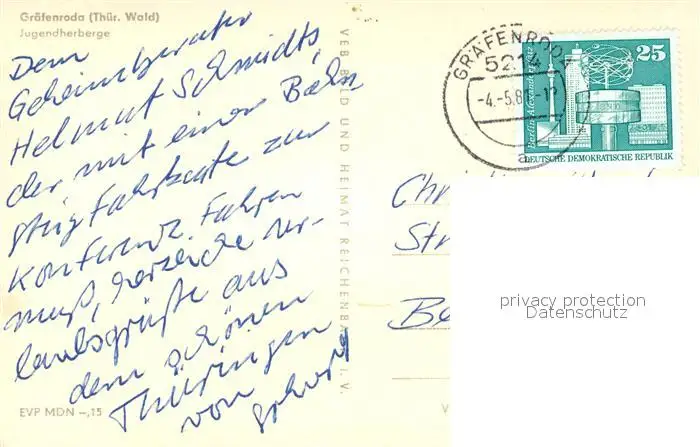 Gräfenroda (Thür. Wald)
Jugendherberge
Dem
Geheimberater
Helmut Schmidts,
der mit einer Bahn
steigfahrkarte zur
Konferenz fahren
muß, herzliche Ur-
laubsgrüße aus
dem schönen
Thüringen
von
EVP MDN -,15
VEB BILD UND HEIMAT REICHENBACH I. V.
GRÄFENRODA
5214
-4.-5.8
a
25
Berlin-Alexanderplatz
DEUTSCHE DEMOKRATISCHE REPUBLIK
Ch
St
Be
V
privacy protection
Datenschutz